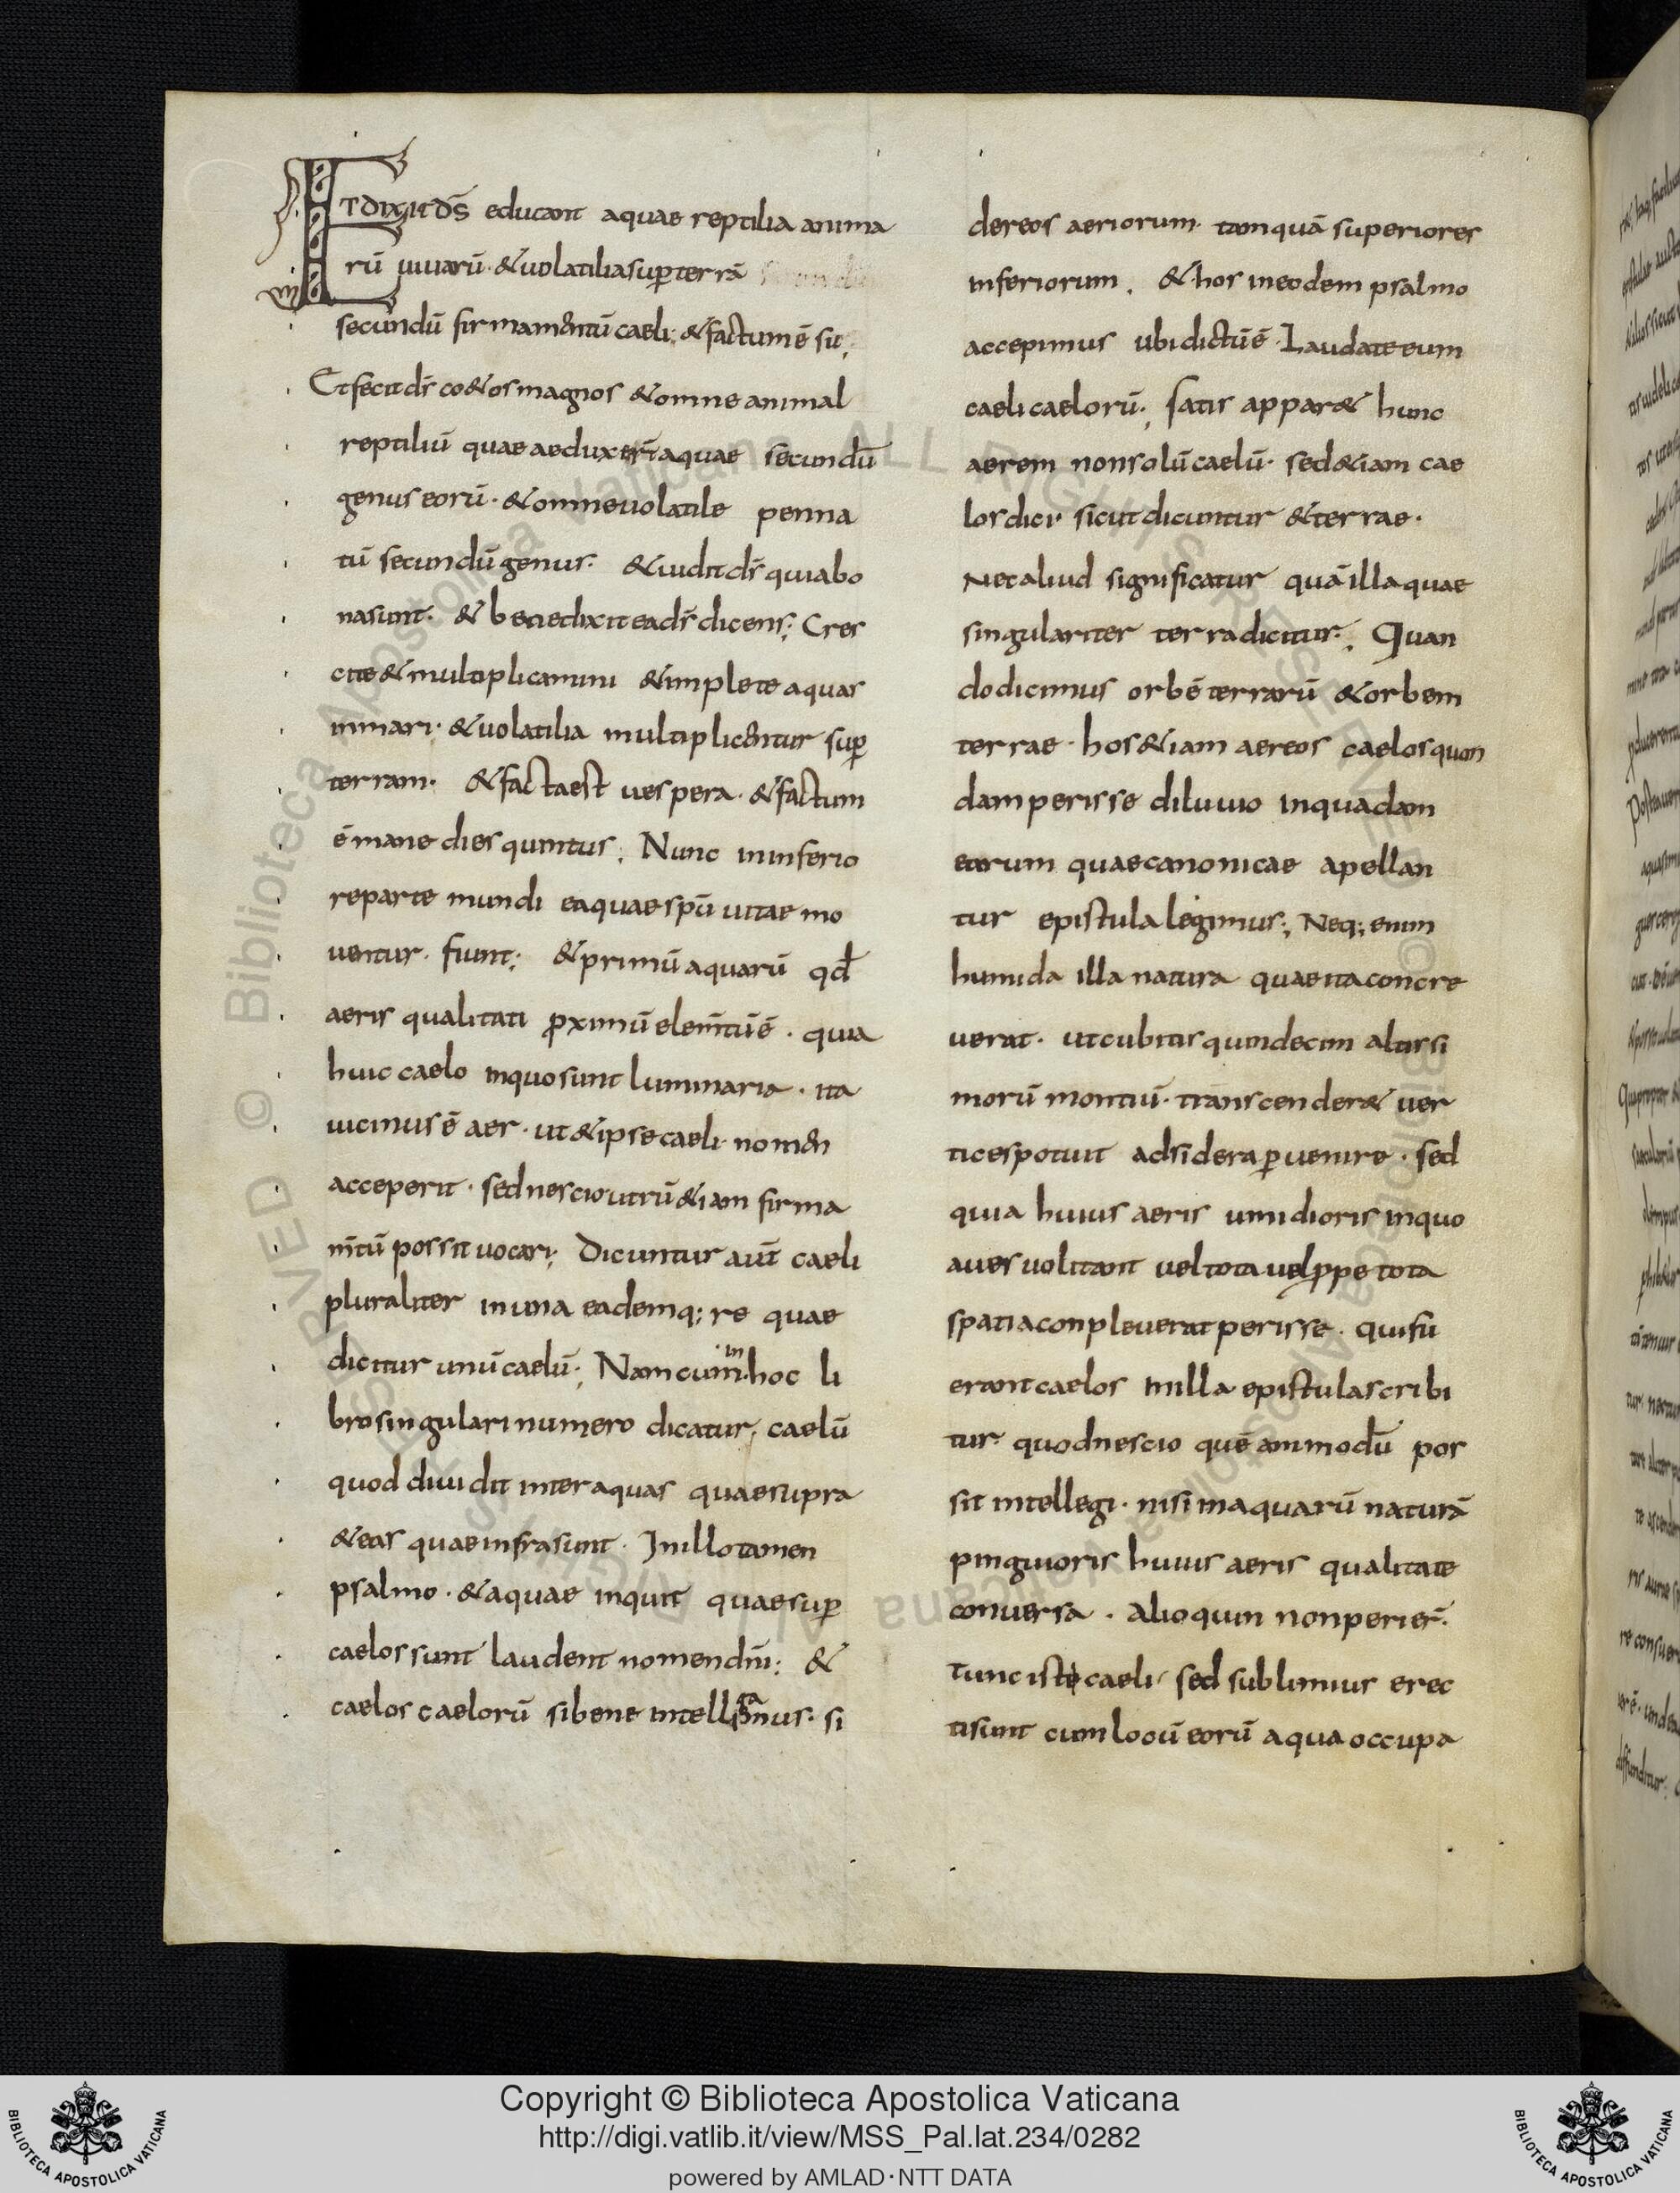 ET DIXIT DS̄ educant aquae reptilia anima
rū uiuarū· & uolatilia suꝑ terrā
secundū firmamentū caeli; & factum ē sic;
Et fecit dr̄ co&os magnos & omne animal
reptiliū quae aeduxer̄ aquae secundū
genus eorū· & omne uolatile penna
tū secundū genus· & uidit dr̄ quia bo
na sunt· & benedixit ea dr̄ dicens; Cres
cite & multiplicamini & implete aquas
in mari· & uolatilia multiplicentur suꝑ
terram· & facta est uespera· & factum
ē mane dies quintus; Nunc in inferio
re parte mundi ea quae spū uitae mo
uentur· fiunt; & primū aquarū qd̄
aeris qualitati ꝓximū elem̄tū ē· quia
huic caelo in quo sunt luminaria· ita
uicinus ē aer· ut & ipse caeli nomen
acceperit· sed nescio utrū &iam firma
m̄tū possit uocari; Dicuntur aut̄ caeli
pluraliter in una eademq; re quae
dicitur unū caelū; Nam cum in hoc li
bro singulari numero dicatur; caelū
quod diuidit inter aquas quae supra
& eas quae infra sunt· In illo tamen
psalmo· & aquae inquit quae suꝑ
caelos sunt laudent nomen dn̄i; &
caelos caelorū si bene intellegamus· si
dereos aeriorum· tamquā superiores
inferiorum; & hos in eodem psalmo
accepimus ubi dictū ē· Laudate eum
caeli caelorū; satis appar& hunc
aerem non solū caelū· sed &iam cae
los dici· sicut dicuntur & terrae·
Nec aliud significatur quā illa quae
singulariter terra dicitur; Quan
do dicimus orbē terrarū & orbem
terrae· hos &iam aereos caelos quon
dam perisse diluuio in quadam
earum quae canonicae apellan
tur epistula legimus; Neq; enim
humida illa natura quae ita concre
uerat· ut cubitis quindecim altissi
morū montiū· transcender& uer
tices potuit ad sidera ꝑuenire· sed
quia huius aeris umidioris in quo
aues uolitant uel tota uel ꝓpe tota
spatia conpleuerat perisse· qui fu
erant caelos in illa epistula scribi
tur· quod nescio quē ammodū pos
sit intellegi· nisi in aquarū naturā
pinguioris huius aeris qualitate
conuersa· Alioquin non perier̄·
tunc iste caeli· sed sublimius erec
ti sunt cum locū eorū aqua occupa
Copyright © Biblioteca Apostolica Vaticana
http://digi.vatlib.it/view/MSS_Pal.lat.234/0282
powered by AMLAD·NTT DATA
BIBLIOTECA APOSTOLICA VATICANA
BIBLIOTECA APOSTOLICA VATICANA